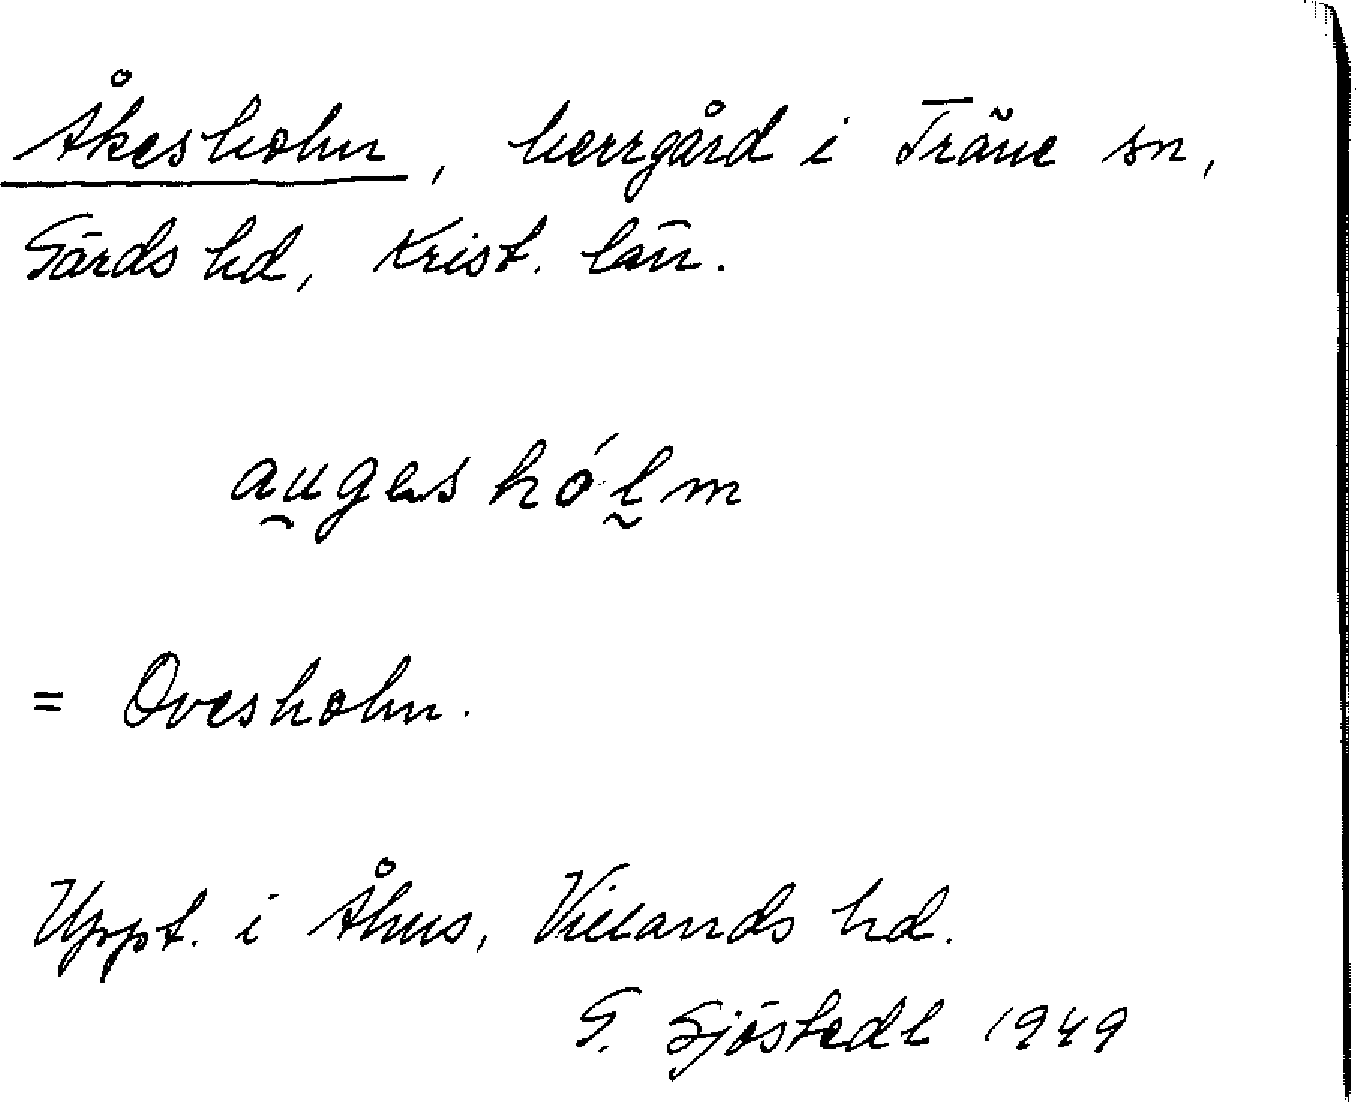 Åkesholm, herrgård i Träne sn,
Gärds hd, Krist. län.
au̯gəshól̰m
= Ovesholm.
Uppt. i Åhus, Villands hd.
G. Sjöstedt 1949